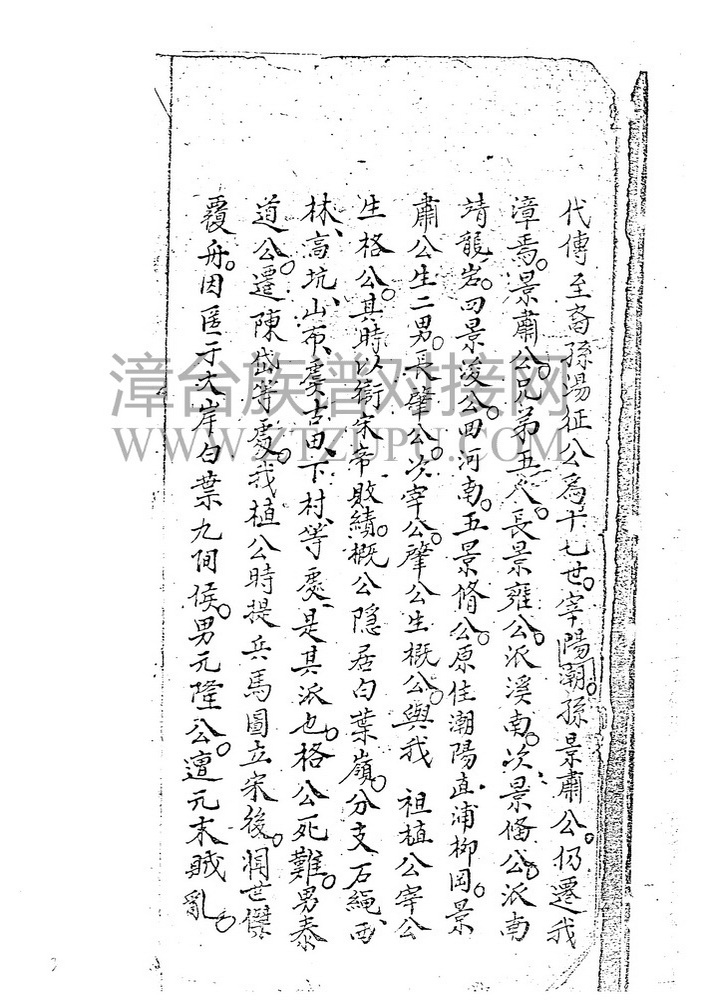 代傳至裔孫湯征公為十七世。宰陽潮。孫景肅公仍遷我
漳焉。景肅公兄弟五人。長景雍公派溪南。次景俻公派南
靖龍岩。四景浚公田河南。五景脩公。原住潮陽直浦柳岡。景
肅公生二男。長肇公。次宰公。肇公生概公。與我 祖植公宰公
生格公。其時以衛宋帝敗績。概公隱居白葉嶺。分支石繩西
林、高坑、山布、虔古田、下村、等處、是其派也。格公死難。男泰
道公。遷陳岱等處。我植公時提兵馬圖立宋後。張世傑
覆舟。因匿于大岸白葉九间候。男元隆公。遭元末賊亂。
漳台族谱对接网
WWW.ZTZUPU.COM